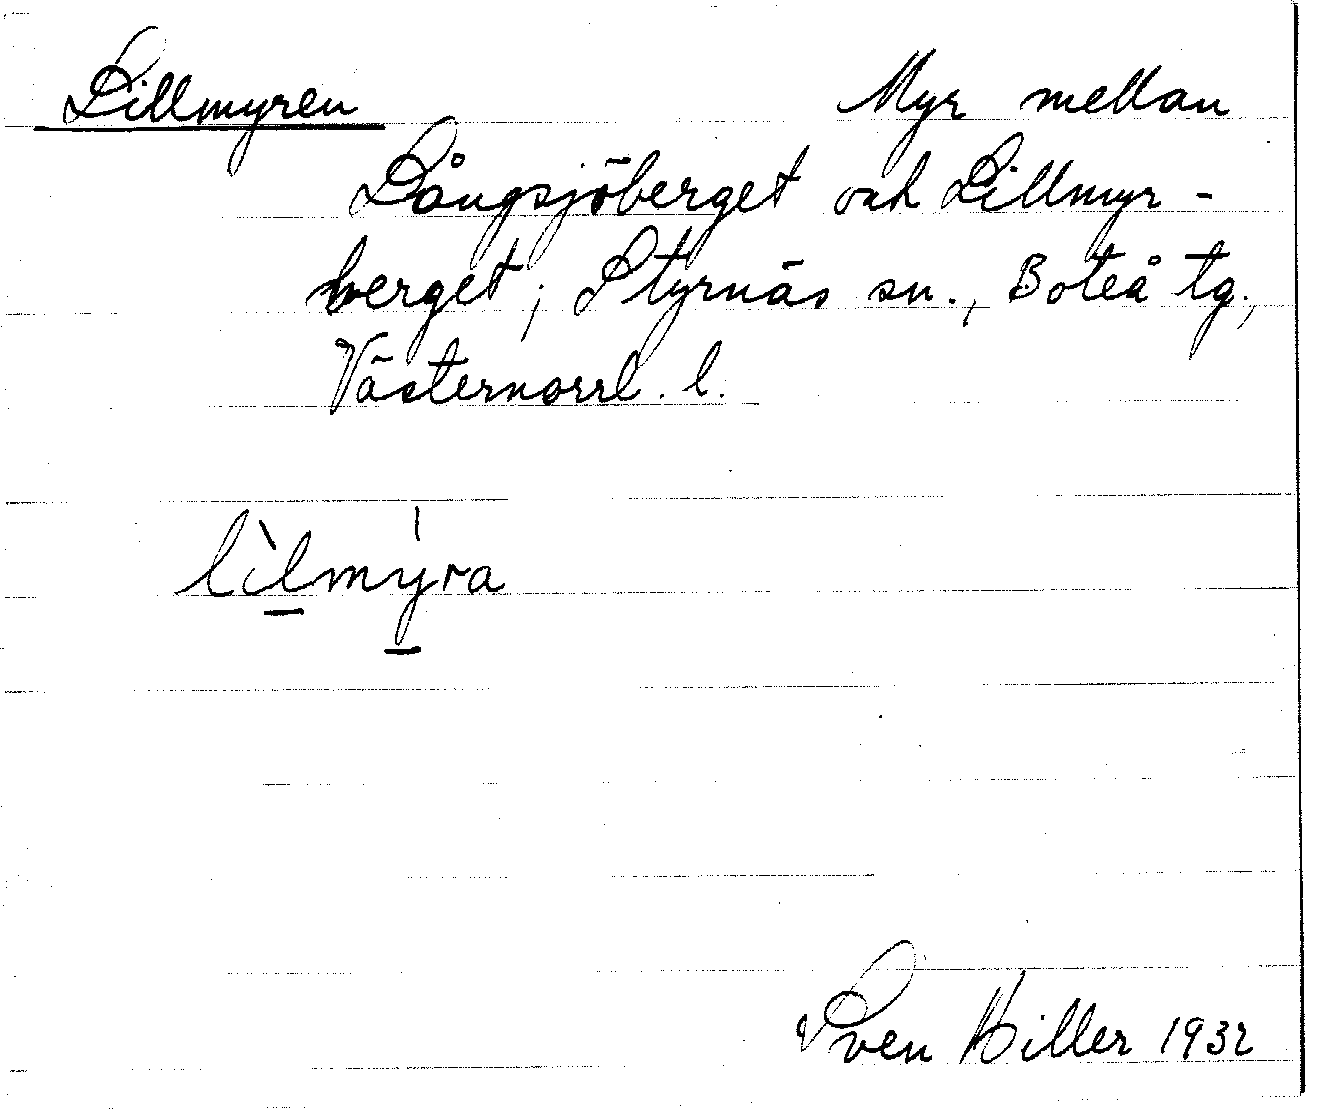 Lillmyren Myr mellan
Långsjöberget och Lillmyr-
berget; Styrnäs sn., Boteå tg.,
Västernorrl. l.
lìlmýra
Sven Hiller 1932